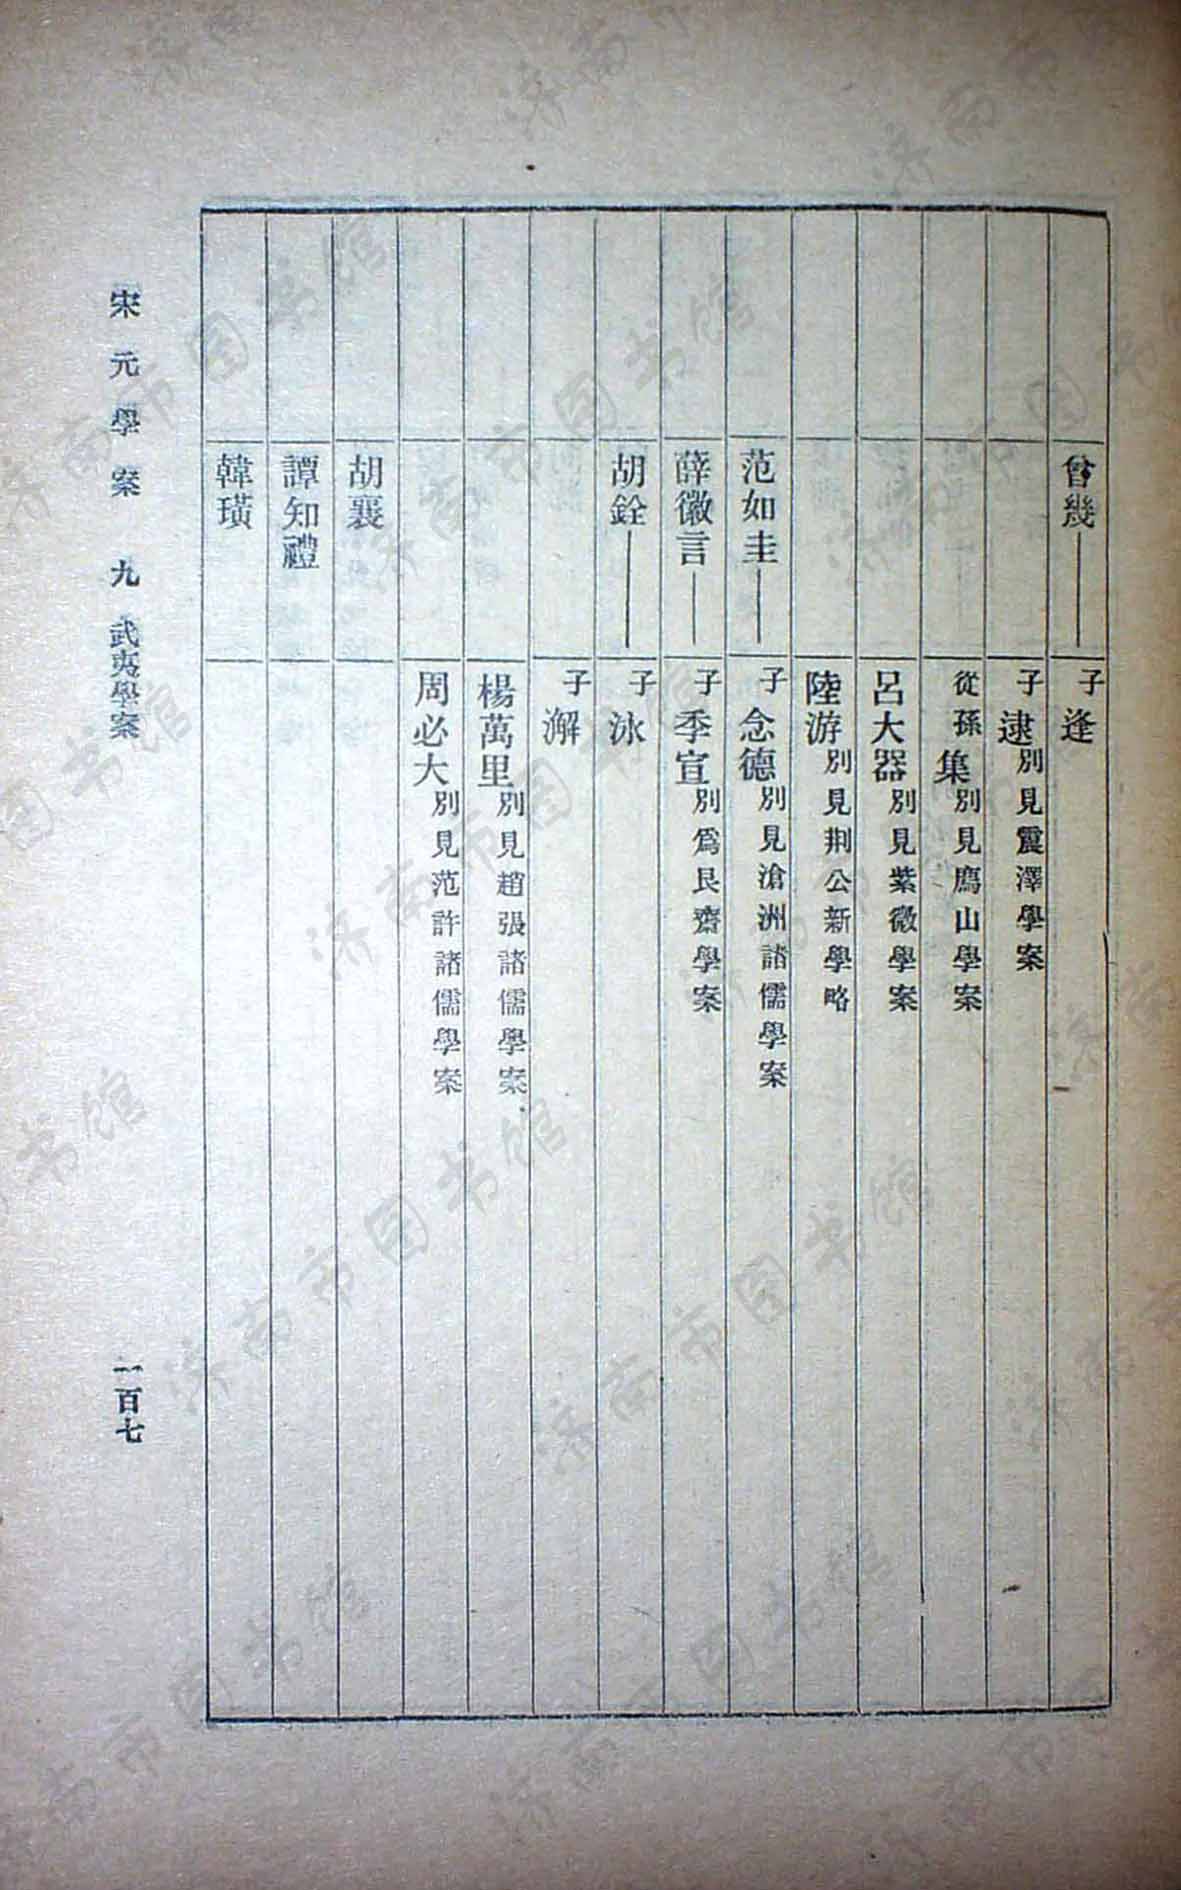 曾幾——子逢
子逮別見震澤學案
從孫集別見廌山學案
呂大器別見紫微學案
陸游別見荆公新學略
范如圭——子念德別見滄洲諸儒學案
薛徽言——子季宣別爲艮齋學案
胡銓——子泳
子澥
楊萬里別見趙張諸儒學案
周必大別見范許諸儒學案
胡襄
譚知禮
韓璜
宋元學案 九 武夷學案 一百七
济南市图书馆